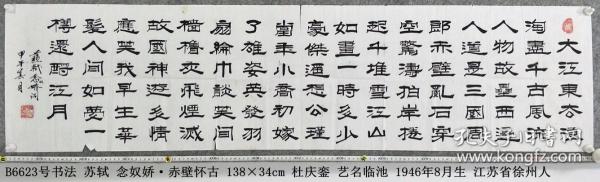 大江東去浪
淘盡千古風流
人物故壘西邊
人道是三國周
郎赤壁亂石穿
空驚濤拍岸捲
起千堆雪江山
如畫一時多少
豪傑遙想公瑾
當年小喬初嫁
了雄姿英發羽
扇綸巾談笑間
檣櫓灰飛煙滅
故國神遊多情
應笑我早生華
髮人間如夢一
樽還酹江月
蘇軾念奴嬌詞
甲午月
B6623号书法 苏轼 念奴娇·赤壁怀古 138×34cm 杜庆銮 艺名临池 1946年8月生 江苏省徐州人